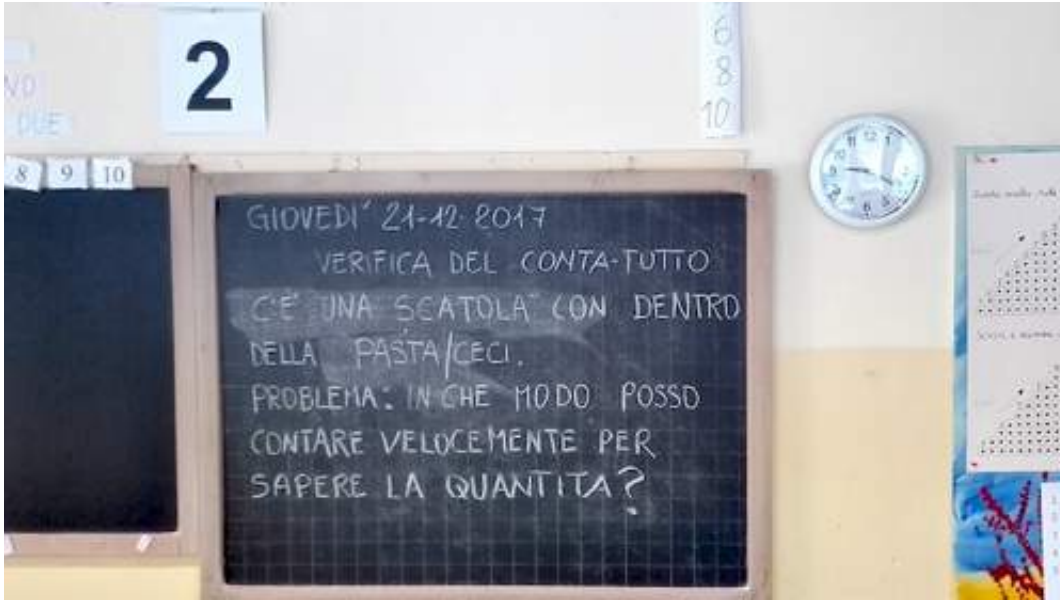 2
6
8
10
DUE
8 9 10
GIOVEDI' 21-12-2017
VERIFICA DEL CONTA-TUTTO
C'È UNA SCATOLA CON DENTRO
DELLA PASTA/CECI.
PROBLEMA: IN CHE MODO POSSO
CONTARE VELOCEMENTE PER
SAPERE LA QUANTITA?